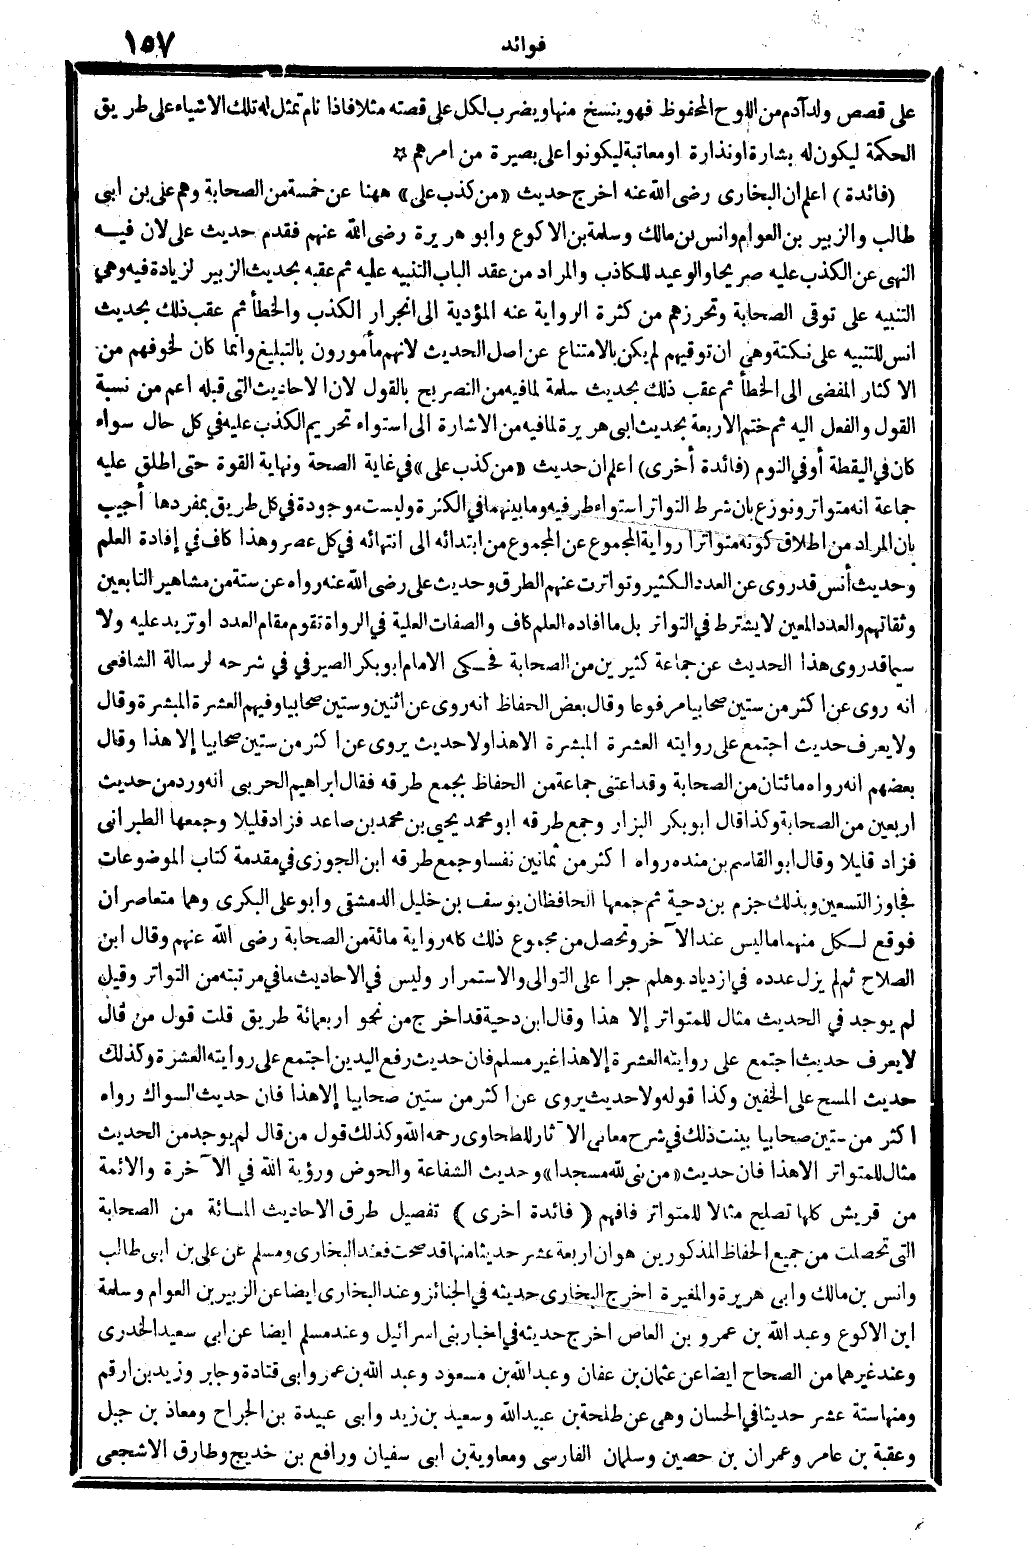 ١٥٧
فوائد
على قصص ولد آدم من اللوح المحفوظ فهو ينسخ منها ويضرب لكل على قصته مثلا فاذا نام تمثل له تلك الاشياء على طريق
الحكمة ليكون له بشارة او نذارة او معاتبة ليكونوا على بصيرة من امرهم ☆
(فائدة) اعلم ان البخارى رضى الله عنه اخرج حديث «من كذب على» ههنا عن خمسة من الصحابة وهم على بن ابى
طالب والزبير بن العوام وانس بن مالك وسلمة بن الاكوع وابو هريرة رضى الله عنهم فقدم حديث على لان فيه
النهى عن الكذب عليه صريحا والوعيد للكاذب والمراد من عقد الباب التنبيه عليه ثم عقبه بحديث الزبير لزيادة فيه وهى
التنبيه على توقى الصحابة وتحرزهم من كثرة الرواية عنه المؤدية الى انجرار الكذب والخطأ ثم عقب ذلك بحديث
انس للتنبيه على نكتة وهى ان توقيهم لم يكن بالامتناع عن اصل الحديث لانهم مأمورون بالتبليغ وانما كان لخوفهم من
الاكثار المفضى الى الخطأ ثم عقب ذلك بحديث سلمة لما فيه من التصريح بالقول لان الاحاديث التى قبله اعم من نسبة
القول والفعل اليه ثم ختم الاربعة بحديث ابى هريرة لما فيه من الاشارة الى استواء تحريم الكذب عليه في كل حال سواء
كان في اليقظة أو في النوم (فائدة أخرى) اعلم ان حديث «من كذب على» في غاية الصحة ونهاية القوة حتى اطلق عليه
جماعة انه متواتر ونوزع بان شرط التواتر استواء طرفيه وما بينهما في الكثرة وليست موجودة في كل طريق بمفردها أجيب
بان المراد من اطلاق كونه متواترا رواية المجموع عن المجموع من ابتدائه الى انتهائه في كل عصر وهذا كاف في إفادة العلم
وحديث أنس قد روى عن العدد الكثير وتواترت عنهم الطرق وحديث على رضى الله عنه رواه عن ستة من مشاهير التابعين
وثقاتهم والعدد المعين لا يشترط في التواتر بل ما افاده العلم كاف والصفات العلية في الرواة تقوم مقام العدد او تزيد عليه ولا
سيما قد روى هذا الحديث عن جماعة كثيرين من الصحابة فحكى الامام ابو بكر الصيرفي في شرحه لرسالة الشافعى
انه روى عن اكثر من ستين صحابيا مرفوعا وقال بعض الحفاظ انه روى عن اثنين وستين صحابيا وفيهم العشرة المبشرة وقال
ولا يعرف حديث اجتمع على روايته العشرة المبشرة الا هذا ولا حديث يروى عن اكثر من ستين صحابيا إلا هذا وقال
بعضهم انه رواه مائتان من الصحابة وقد اعتنى جماعة من الحفاظ بجمع طرقه فقال ابراهيم الحربى انه ورد من حديث
اربعين من الصحابة وكذا قال ابو بكر البزار وجمع طرقه ابو محمد يحيى بن محمد بن صاعد فزاد قليلا وجمعها الطبرانى
فزاد قليلا وقال ابو القاسم بن منده رواه اكثر من ثمانين نفسا وجمع طرقه ابن الجوزى في مقدمة كتاب الموضوعات
فجاوز التسعين وبذلك جزم بن دحية ثم جمعها الحافظان يوسف بن خليل الدمشقى وابو على البكرى وهما متعاصران
فوقع لكل منهما ما ليس عند الآخر وتحصل من مجموع ذلك كله رواية مائة من الصحابة رضى الله عنهم وقال ابن
الصلاح ثم لم يزل عدده في ازدياد وهلم جرا على التوالى والاستمرار وليس في الاحاديث ما في مرتبته من التواتر وقيل
لم يوجد في الحديث مثال للمتواتر إلا هذا وقال ابن دحية قد اخرج من نحو اربعمائة طريق قلت قول من قال
لا يعرف حديث اجتمع على روايته العشرة إلا هذا غير مسلم فان حديث رفع اليدين اجتمع على روايته العشرة وكذلك
حديث المسح على الخفين وكذا قوله ولا حديث يروى عن اكثر من ستين صحابيا إلا هذا فان حديث السواك رواه
اكثر من ستين صحابيا بينت ذلك في شرح معانى الآثار للطحاوى رحمه الله وكذلك قول من قال لم يوجد من الحديث
مثال للمتواتر الا هذا فان حديث «من بنى لله مسجدا» وحديث الشفاعة والحوض ورؤية الله في الآخرة والائمة
من قريش كلها تصلح مثالا للمتواتر فافهم (فائدة اخرى) تفصيل طرق الاحاديث المائة من الصحابة
التى تحصلت من جميع الحفاظ المذكورين هو ان اربعة عشر حديثا منها قد صحت فعند البخارى ومسلم عن على بن ابى طالب
وانس بن مالك وابى هريرة والمغيرة اخرج البخارى حديثه في الجنائز وعند البخارى ايضا عن الزبير بن العوام وسلمة
ابن الاكوع وعبد الله بن عمرو بن العاص اخرج حديثه في اخبار بنى اسرائيل وعند مسلم ايضا عن ابى سعيد الخدرى
وعند غيرهما من الصحاح ايضا عن عثمان بن عفان وعبد الله بن مسعود وعبد الله بن عمر وابى قتادة وجابر وزيد بن ارقم
ومنها ستة عشر حديثا في الحسان وهى عن طلحة بن عبيد الله وسعيد بن زيد وابى عبيدة بن الجراح ومعاذ بن جبل
وعقبة بن عامر وعمران بن حصين وسلمان الفارسى ومعاوية بن ابى سفيان ورافع بن خديج وطارق الاشجعى